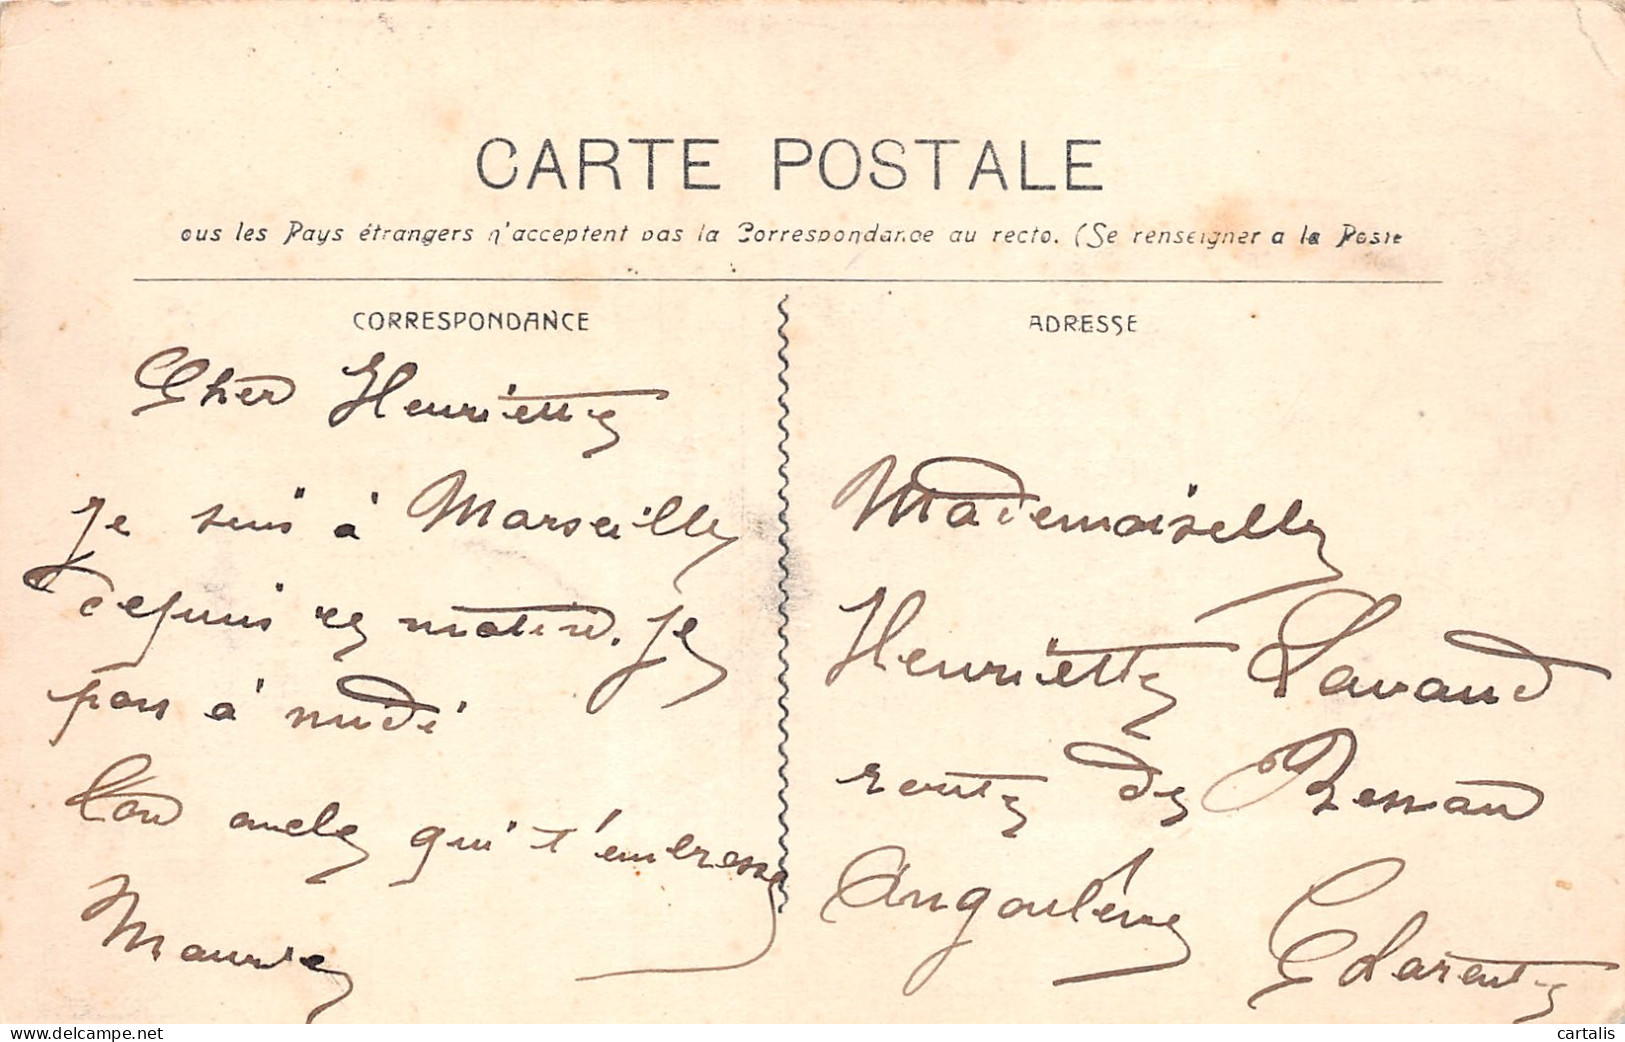 CARTE POSTALE
ous les Pays étrangers n'acceptent pas la Correspondance au recto. (Se renseigner a la Poste
CORRESPONDANCE
ADRESSE
Cher Henriette
Je suis à Marseille
depuis ce matin. Je
pars à midi
Ton oncle qui t'embrasse
Maurice
Mademoiselle
Henriette Lavaud
route de
Angoulême Charente
cartalis